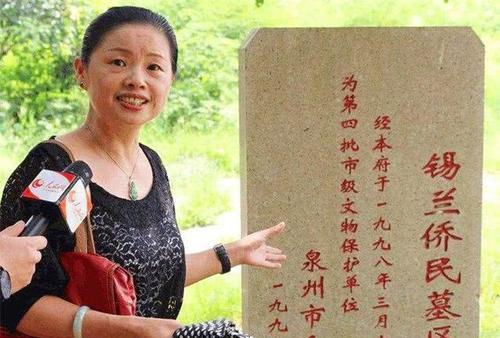 锡兰侨民墓区
经本府于一九九八年三月
为第四批市级文物保护单位
泉州市
一九九